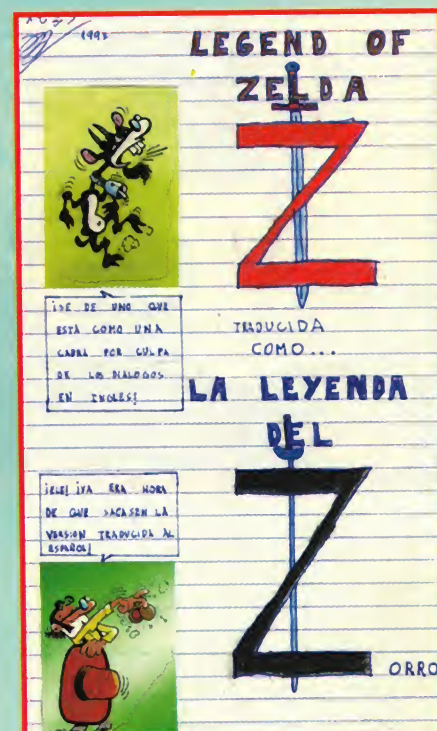 1993
LEGEND OF
ZELDA
Z
¡SE DE UNO QUE
ESTÁ COMO UNA
CABRA POR CULPA
DE LOS DIALOGOS
EN INGLES!
TRADUCIDA
COMO...
LA LEYENDA
DEL
Z
ORRO
¡ELE! ¡YA ERA HORA
DE QUE SACASEN LA
VERSION TRADUCIDA AL
ESPAÑOL!